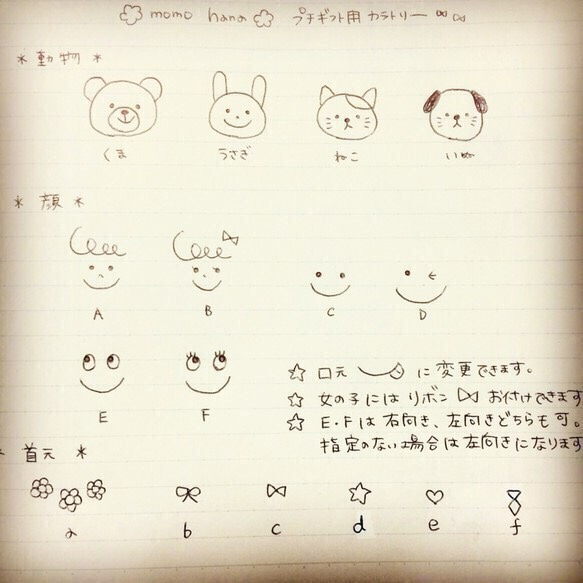 momo hana プチギフト用 カラトリー
* 動物 *
くま うさぎ ねこ いぬ
* 顔 *
A B C D
E F
☆ 口元 に変更できます。
☆ 女の子にはリボン お付けできます
☆ E・Fは右向き、左向きどちらも可。
指定のない場合は左向きになります
* 首元 *
a b c d e f